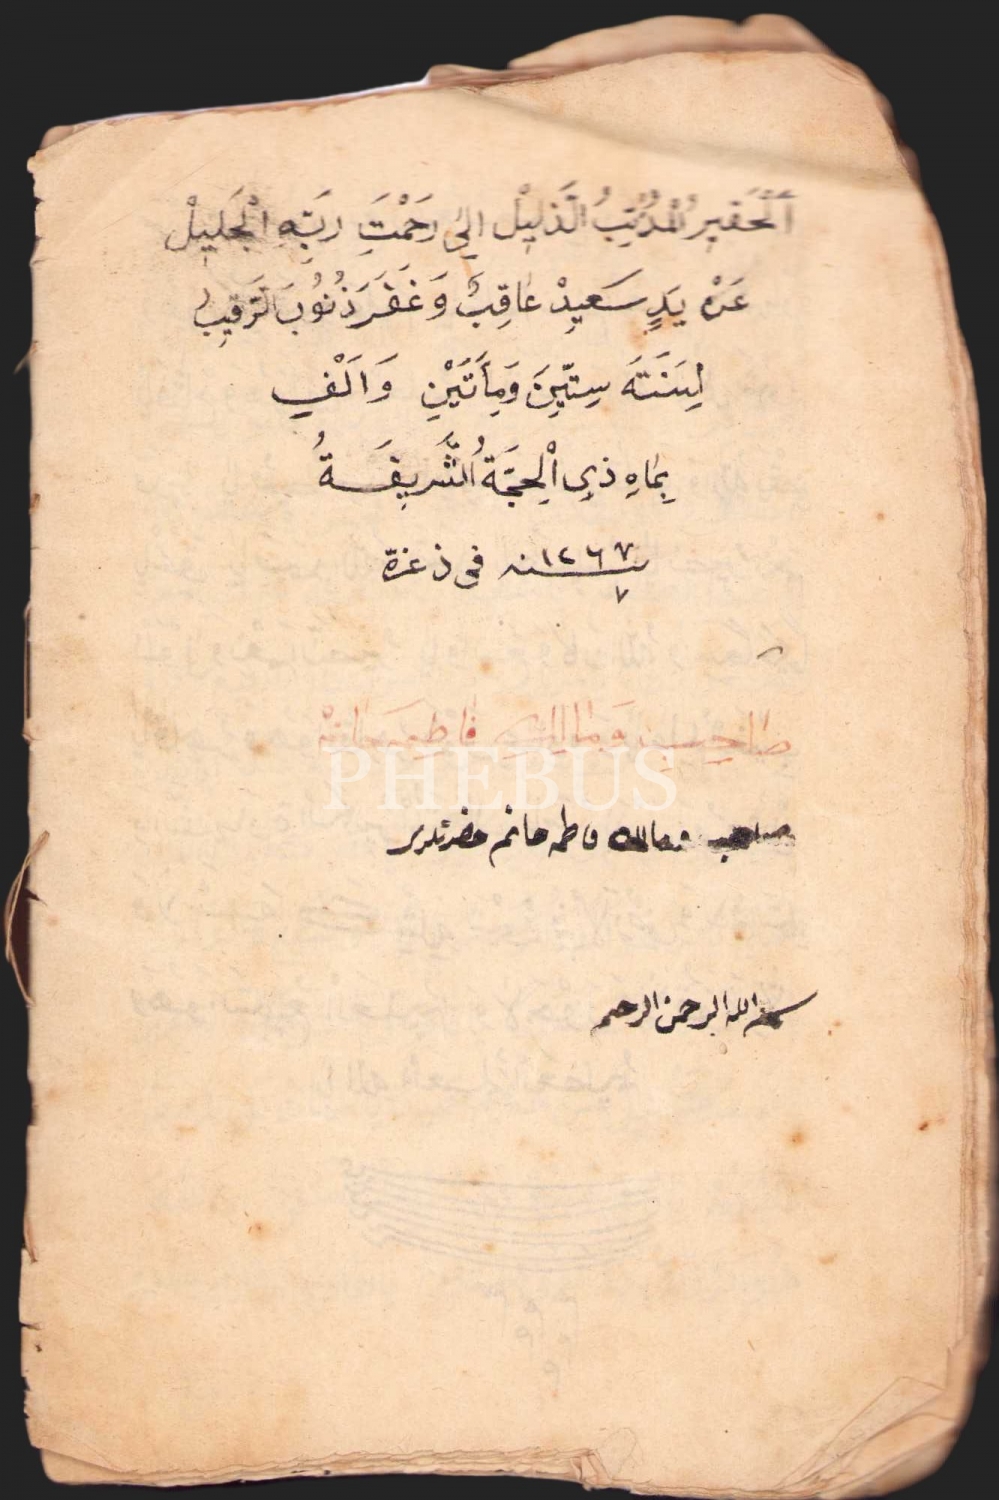 اَلْحَقِيرُ الْمُذْنِبُ الَّذَلِيلْ اِلىٰ رَحَمْتَ رَبّهِ الْجَلِيلْ
عَنْ يَدِ سَعِيدْ عَاقِبْ وَغَفَرَ ذُنُوبَ
لِسَنَتَه سِتّينَ وَمِأَتَيْنِ وَاَلْفٍ
بِمَاهِ ذِى اْلِحجّةَ الشَّرِيفَةُ
سنه ١٢٦٧ فى ذ غرة
٧
صاحب ومالك فاطمه خانم
PHEBUS
صاحب ومالك فاطمه خانم حضرتلرى
بسم الله الرحمن الرحيم